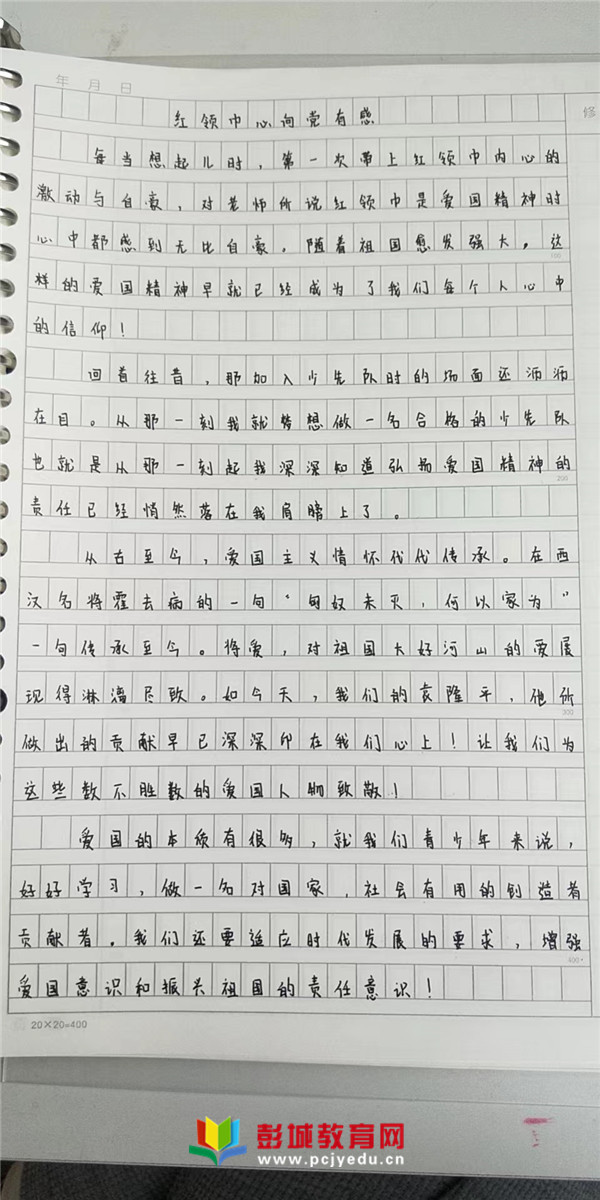 年 月 日
修
红领巾心向党有感
每当想起儿时，第一次带上红领巾内心的
激动与自豪，对老师所说红领巾是爱国精神时
心中都感到无比自豪。随着祖国愈发强大。这
100
样的爱国精神早就已经成为了我们每个人心中
的信仰！
回首往昔，那加入少先队时的场面还沥沥
在目。从那一刻我就梦想做一名合格的少先队
也就是从那一刻起我深深知道弘扬爱国精神的
200
责任已经悄然落在我肩膀上了。
从古至今，爱国主义情怀代代传承。在西
汉名将霍去病的一句“匈奴未灭，何以家为”
一句传承至今。将爱，对祖国大好河山的爱展
现得淋漓尽致。如今天，我们的袁隆平，他所
300
做出的贡献早已深深印在我们心上！让我们为
这些数不胜数的爱国人物致敬！
爱国的本质有很多，就我们青少年来说，
好好学习，做一名对国家，社会有用的创造者
贡献者。我们还要适应时代发展的要求，增强
400
爱国意识和振兴祖国的责任意识！
20×20=400
彭城教育网
www.pcjyedu.cn